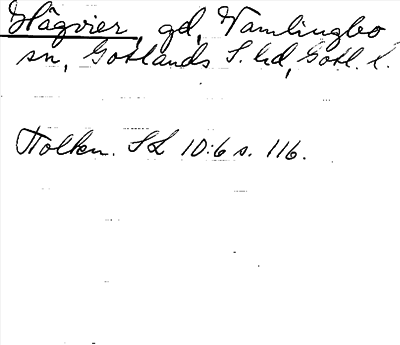 Hägvier, gd, Vamlingbo
sn, Gotlands S. hd, Gotl. l.
Tolkn. SL 10:6 s. 116.